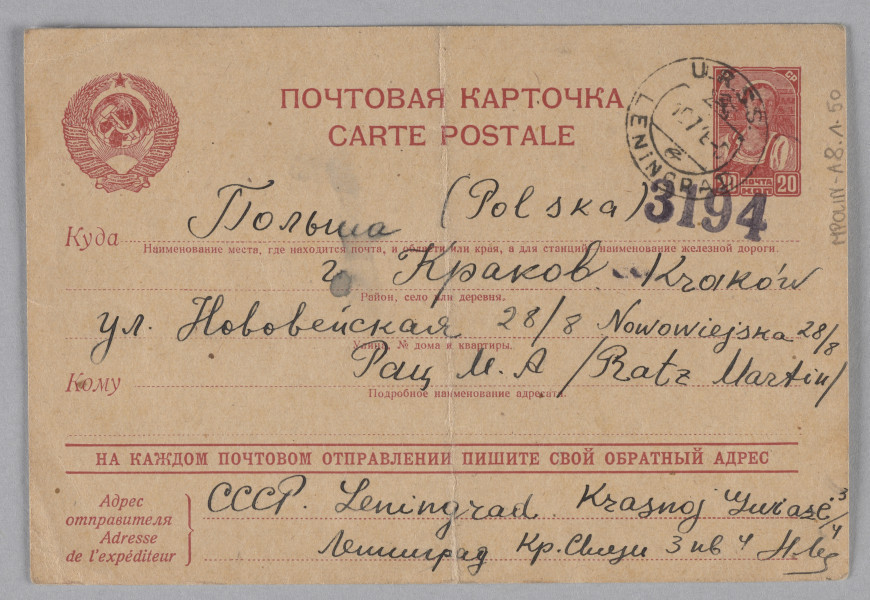 ПОЧТОВАЯ КАРТОЧКА
CARTE POSTALE
U.R.S.S.
LENINGRAD
СР
20
ПОЧТА
20
3194
Куда Польша (Polska)
Наименование места, где находится почта, и области или края, а для станций—наименование железной дороги.
г. Краков - Kraków
Район, село или деревня.
ул. Нововейская 28/8 Nowowiejska 28/8
Улица, № дома и квартиры.
Кому Рац М. А /Ratz Martin/
Подробное наименование адресата.
НА КАЖДОМ ПОЧТОВОМ ОТПРАВЛЕНИИ ПИШИТЕ СВОЙ ОБРАТНЫЙ АДРЕС
Адрес
отправителя
Adresse
de l'expéditeur
СССР. Leningrad. Krasnoj 3/4
Ленинград Кр. Связи 3 кв 4